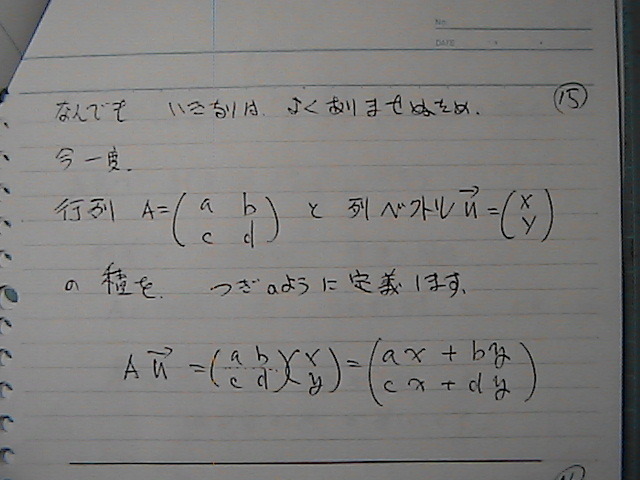 No.
DATE
⑮
なんでも いきなりは、よくありませぬため、
今一度、
行列 A=(a b c d) と 列ベクトル u→=(x y)
の 積を、 つぎのように定義します。
A u→ =(a b c d)(x y)=(ax+by cx+dy)